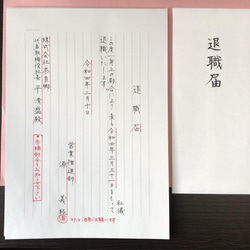 退職届
私儀
この度一身上の都合により来る令和四年三月三十一日をもって
退職いたします。
令和四年二月十日
営業推進部
源 義経
株式会社
代表取締役社長 平清盛殿
退職届